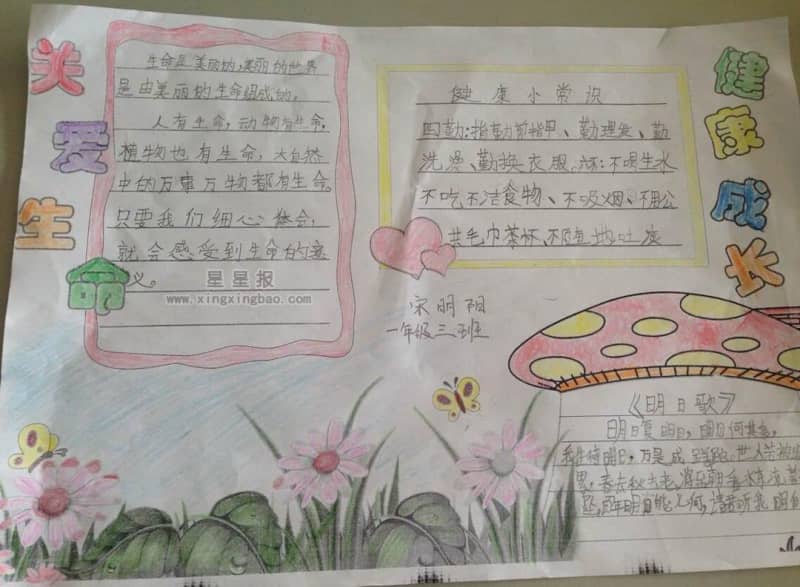 关爱生命
生命是美丽的,美丽的世界
是由美丽的生命组成的。
人有生命,动物有生命,
植物也有生命,大自然
中的万事万物都有生命。
只要我们细心体会,
就会感受到生命的意
义。
星星报
www.xingxingbao.com
健康小常识
四勤:指勤剪指甲、勤理发、勤
洗澡、勤换衣服。六不:不喝生水
不吃不洁食物、不吸烟、不用公
共毛巾茶杯、不随地吐痰
健康成长
宋明阳
一年级三班
《明日歌》
明日复明日,明日何其多,
我生待明日,万事成蹉跎。世人苦被
春去秋去老将至,朝看水东流,暮
百年明日能几何,请君听我明日